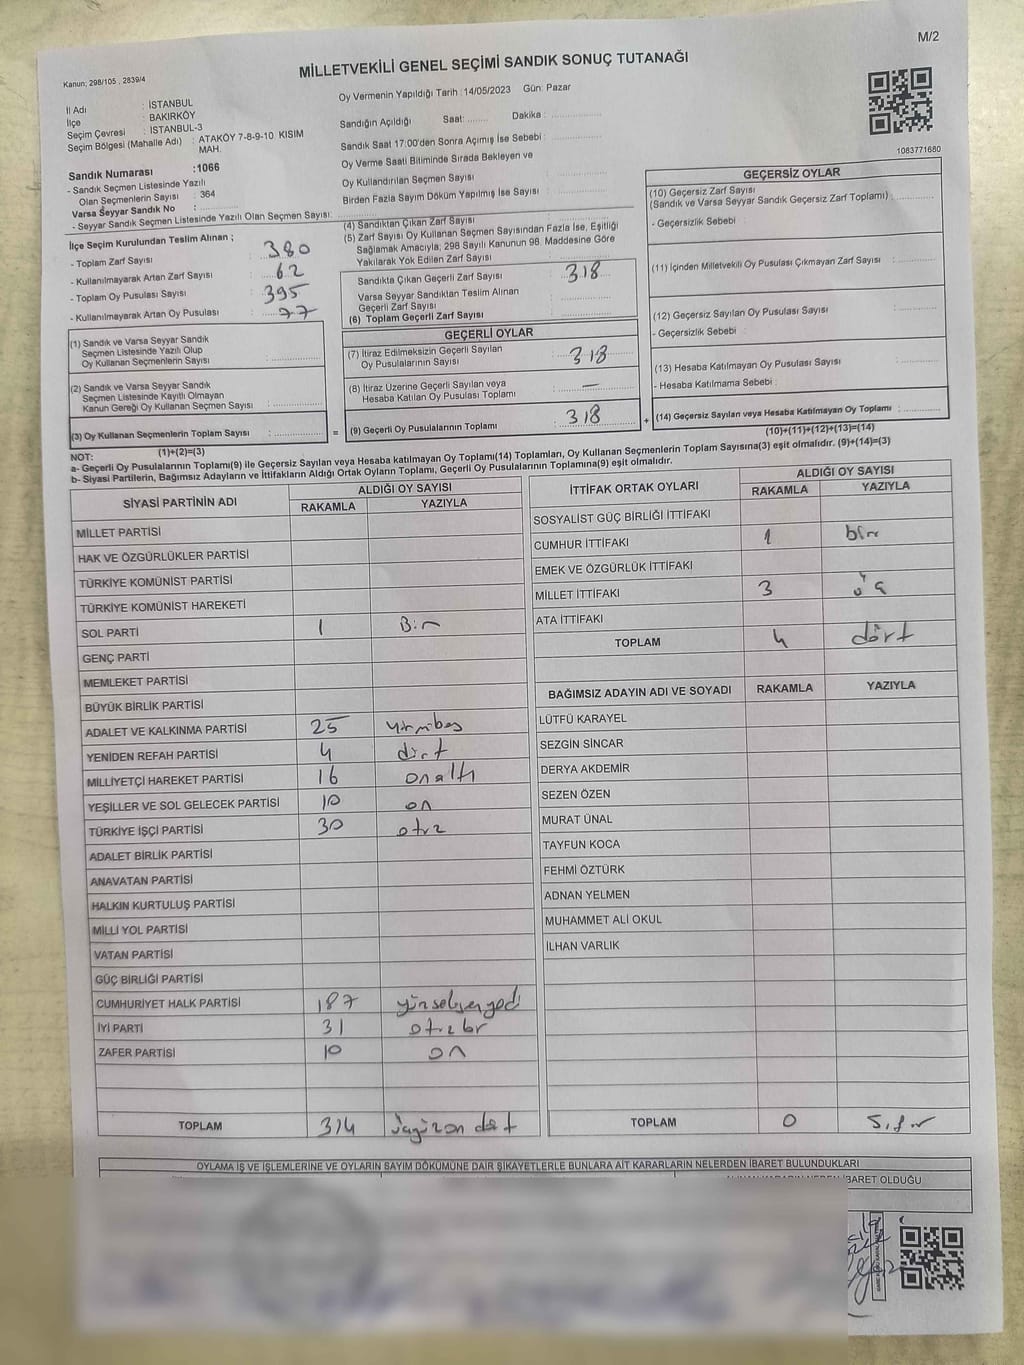 M/2
Kanun; 298/105 , 2839/4
MİLLETVEKİLİ GENEL SEÇİMİ SANDIK SONUÇ TUTANAĞI
İl Adı : İSTANBUL
İlçe : BAKIRKÖY
Seçim Çevresi : İSTANBUL-3
Seçim Bölgesi (Mahalle Adı) : ATAKÖY 7-8-9-10. KISIM
MAH.
Sandık Numarası :1066
- Sandık Seçmen Listesinde Yazılı
Olan Seçmenlerin Sayısı : 364
Varsa Seyyar Sandık No :
- Seyyar Sandık Seçmen Listesinde Yazılı Olan Seçmen Sayısı:
Oy Vermenin Yapıldığı Tarih :14/05/2023 Gün: Pazar
Sandığın Açıldığı Saat: ........ Dakika : ................
Sandık Saat 17:00'den Sonra Açımış İse Sebebi :
Oy Verme Saati Bitiminde Sırada Bekleyen ve
Oy Kullandırılan Seçmen Sayısı :
Birden Fazla Sayım Döküm Yapılmış İse Sayısı :
1083771680
İlçe Seçim Kurulundan Teslim Alınan ;
- Toplam Zarf Sayısı : 380
- Kullanılmayarak Artan Zarf Sayısı : 62
- Toplam Oy Pusulası Sayısı : 395
- Kullanılmayarak Artan Oy Pusulası : 77
(1) Sandık ve Varsa Seyyar Sandık
Seçmen Listesinde Yazılı Olup
Oy Kullanan Seçmenlerin Sayısı :
(2) Sandık ve Varsa Seyyar Sandık
Seçmen Listesinde Kayıtlı Olmayan
Kanun Gereği Oy Kullanan Seçmen Sayısı :
(3) Oy Kullanan Seçmenlerin Toplam Sayısı :
(1)+(2)=(3)
(4) Sandıktan Çıkan Zarf Sayısı :
(5) Zarf Sayısı Oy Kullanan Seçmen Sayısından Fazla İse, Eşitliği
Sağlamak Amacıyla; 298 Sayılı Kanunun 98. Maddesine Göre
Yakılarak Yok Edilen Zarf Sayısı :
Sandıkta Çıkan Geçerli Zarf Sayısı : 318
Varsa Seyyar Sandıktan Teslim Alınan
Geçerli Zarf Sayısı :
(6) Toplam Geçerli Zarf Sayısı :
GEÇERLİ OYLAR
(7) İtiraz Edilmeksizin Geçerli Sayılan
Oy Pusulalarının Sayısı : 318
(8) İtiraz Üzerine Geçerli Sayılan veya
Hesaba Katılan Oy Pusulası Toplamı : —
= (9) Geçerli Oy Pusulalarının Toplamı : 318
GEÇERSİZ OYLAR
(10) Geçersiz Zarf Sayısı
(Sandık ve Varsa Seyyar Sandık Geçersiz Zarf Toplamı) :
- Geçersizlik Sebebi :
(11) İçinden Milletvekili Oy Pusulası Çıkmayan Zarf Sayısı :
(12) Geçersiz Sayılan Oy Pusulası Sayısı :
- Geçersizlik Sebebi :
(13) Hesaba Katılmayan Oy Pusulası Sayısı :
- Hesaba Katılmama Sebebi :
+ (14) Geçersiz Sayılan veya Hesaba Katılmayan Oy Toplamı :
(10)+(11)+(12)+(13)=(14)
NOT:
a- Geçerli Oy Pusulalarının Toplamı(9) ile Geçersiz Sayılan veya Hesaba katılmayan Oy Toplamı(14) Toplamları, Oy Kullanan Seçmenlerin Toplam Sayısına(3) eşit olmalıdır. (9)+(14)=(3)
b- Siyasi Partilerin, Bağımsız Adayların ve İttifakların Aldığı Ortak Oyların Toplamı, Geçerli Oy Pusulalarının Toplamına(9) eşit olmalıdır.
SİYASİ PARTİNİN ADI ALDIĞI OY SAYISI
RAKAMLA YAZIYLA
MİLLET PARTİSİ
HAK VE ÖZGÜRLÜKLER PARTİSİ
TÜRKİYE KOMÜNİST PARTİSİ
TÜRKİYE KOMÜNİST HAREKETİ
SOL PARTİ 1 Bir
GENÇ PARTİ
MEMLEKET PARTİSİ
BÜYÜK BİRLİK PARTİSİ
ADALET VE KALKINMA PARTİSİ 25 yirmibeş
YENİDEN REFAH PARTİSİ 4 dört
MİLLİYETÇİ HAREKET PARTİSİ 16 onaltı
YEŞİLLER VE SOL GELECEK PARTİSİ 10 on
TÜRKİYE İŞÇİ PARTİSİ 30 otuz
ADALET BİRLİK PARTİSİ
ANAVATAN PARTİSİ
HALKIN KURTULUŞ PARTİSİ
MİLLİ YOL PARTİSİ
VATAN PARTİSİ
GÜÇ BİRLİĞİ PARTİSİ
CUMHURİYET HALK PARTİSİ 187 yüzseksenyedi
İYİ PARTİ 31 otuzbir
ZAFER PARTİSİ 10 on
TOPLAM 314 üçyüzon dört
İTTİFAK ORTAK OYLARI ALDIĞI OY SAYISI
RAKAMLA YAZIYLA
SOSYALİST GÜÇ BİRLİĞİ İTTİFAKI
CUMHUR İTTİFAKI 1 bir
EMEK VE ÖZGÜRLÜK İTTİFAKI
MİLLET İTTİFAKI 3 üç
ATA İTTİFAKI
TOPLAM 4 dört
BAĞIMSIZ ADAYIN ADI VE SOYADI RAKAMLA YAZIYLA
LÜTFÜ KARAYEL
SEZGİN SİNCAR
DERYA AKDEMİR
SEZEN ÖZEN
MURAT ÜNAL
TAYFUN KOCA
FEHMİ ÖZTÜRK
ADNAN YELMEN
MUHAMMET ALİ OKUL
İLHAN VARLIK
TOPLAM 0 Sıfır
OYLAMA İŞ VE İŞLEMLERİNE VE OYLARIN SAYIM DÖKÜMÜNE DAİR ŞİKAYETLERLE BUNLARA AİT KARARLARIN NELERDEN İBARET BULUNDUKLARI
İBARET OLDUĞU